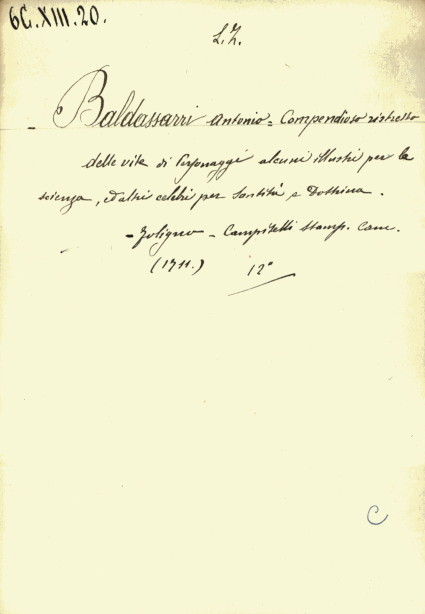 6C.XIII.20.
L.Z.
- Baldassarri Antonio = Compendioso ristretto
delle vite di Personaggi alcuni illustri per la
scienza, ed altri celebri per Santità e Dottrina.
- Foligno - Campitelli Stamp. Cam.
(1711.) 12°
C